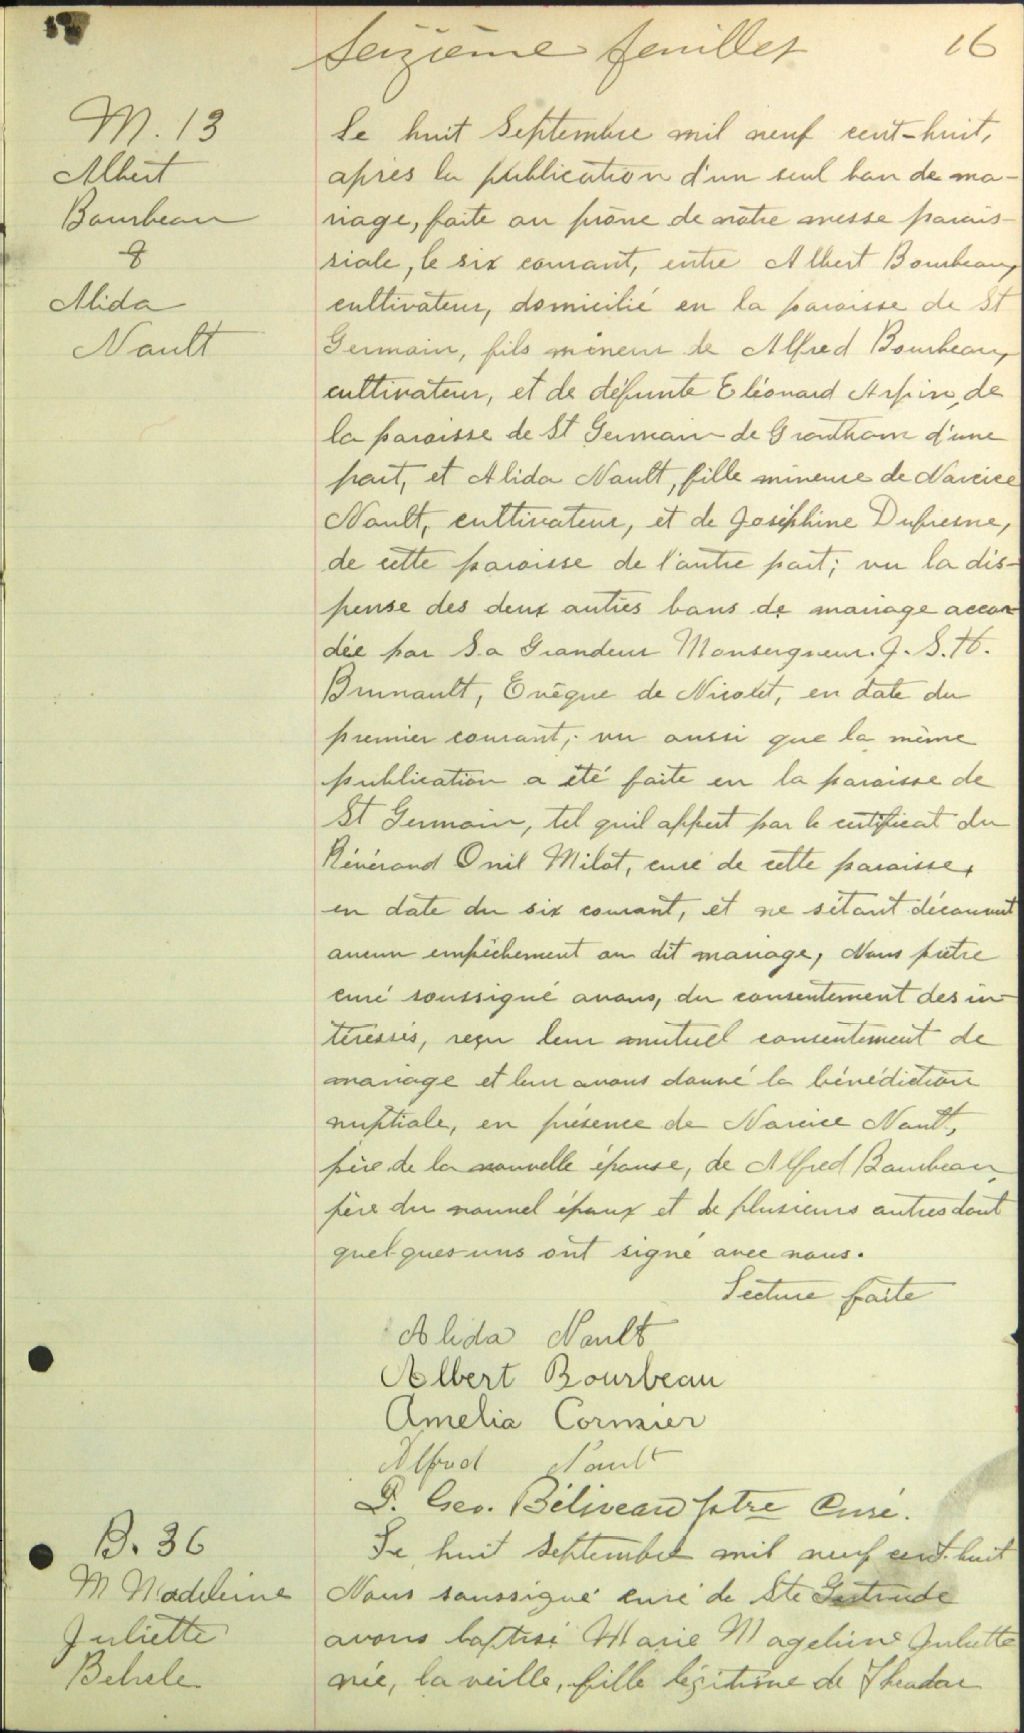 Seizième feuillet 16
M. 13
Albert
Bourbeau
&
Alida
Nault
Le huit Septembre mil neuf cent-huit,
après la publication d'un seul ban de ma-
riage, faite au prône de notre messe parois-
siale, le six courant, entre Albert Bourbeau,
cultivateur, domicilié en la paroisse de St
Germain, fils mineur de Alfred Bourbeau,
cultivateur, et de défunte Eléonard Arpin, de
la paroisse de St Germain de Grantham d'une
part, et Alida Nault, fille mineure de Narcice
Nault, cultivateur, et de Joséphine Dufresne,
de cette paroisse de l'autre part; vu la dis-
pense des deux autres bans de mariage accor-
dée par Sa Grandeur Monseigneur. J. S. H.
Brunault, Evêque de Nicolet, en date du
premier courant; vu aussi que la même
publication a été faite en la paroisse de
St Germain, tel qu'il appert par le certificat du
Révérand Onil Milot, curé de cette paroisse,
en date du six courant, et ne s'étant découvert
aucun empêchement au dit mariage, Nous prêtre
curé soussigné avons, du consentement des in-
téressés, reçu leur mutuel consentement de
mariage et leur avons donné la bénédiction
nuptiale, en présence de Narcice Nault,
père de la nouvelle épouse, de Alfred Bourbeau,
père du nouvel époux et de plusieurs autres dont
quelques-uns ont signé avec nous.
Lecture faite
Alida Nault
Albert Bourbeau
Amelia Cormier
Alfred Nault
P. Geo. Béliveau ptre Curé.
B. 36
M Madeleine
Juliette
Belisle
Le huit Septembre mil neuf cent-huit
Nous soussigné curé de Ste Gertrude
avons baptisé Marie Mageleine Juliette
née, la veille, fille légitime de Theodor